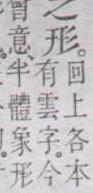 之形。回上各本
有雲字。今
會意。半體象形